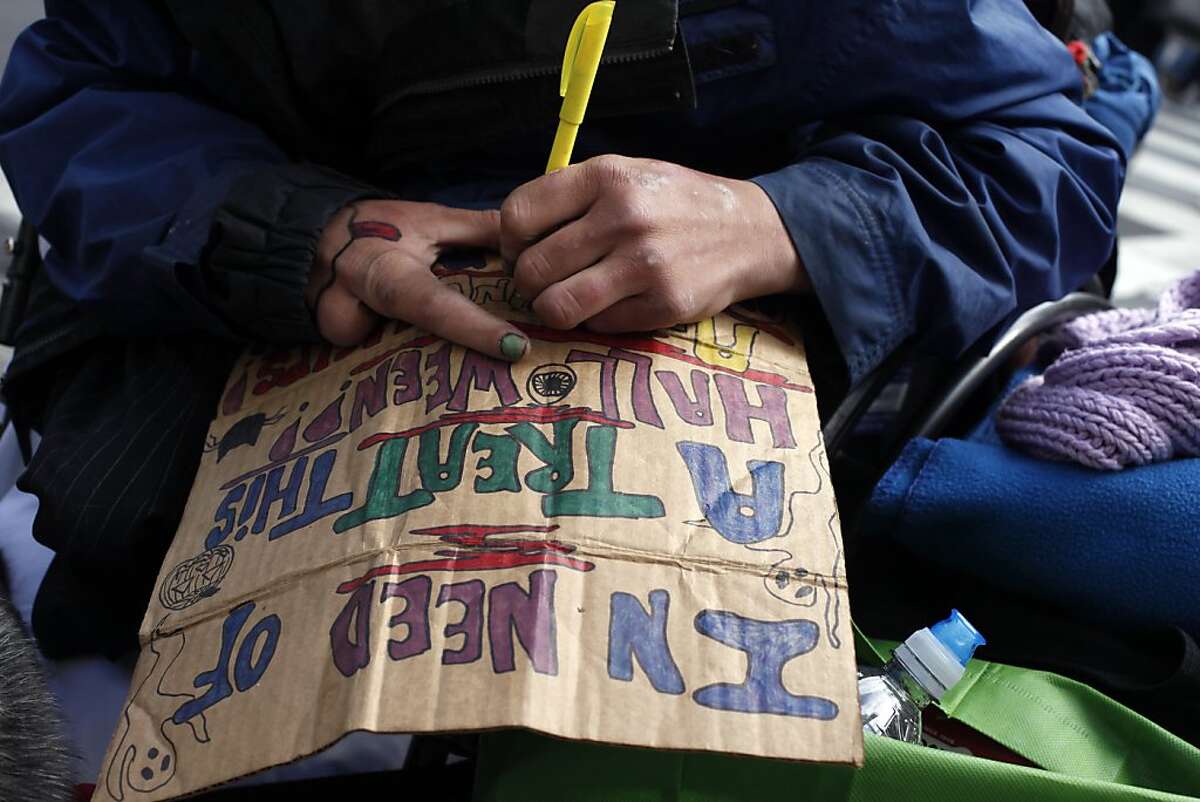 IN NEED OF
A TREAT THIS
HALLOWEEN!?
A